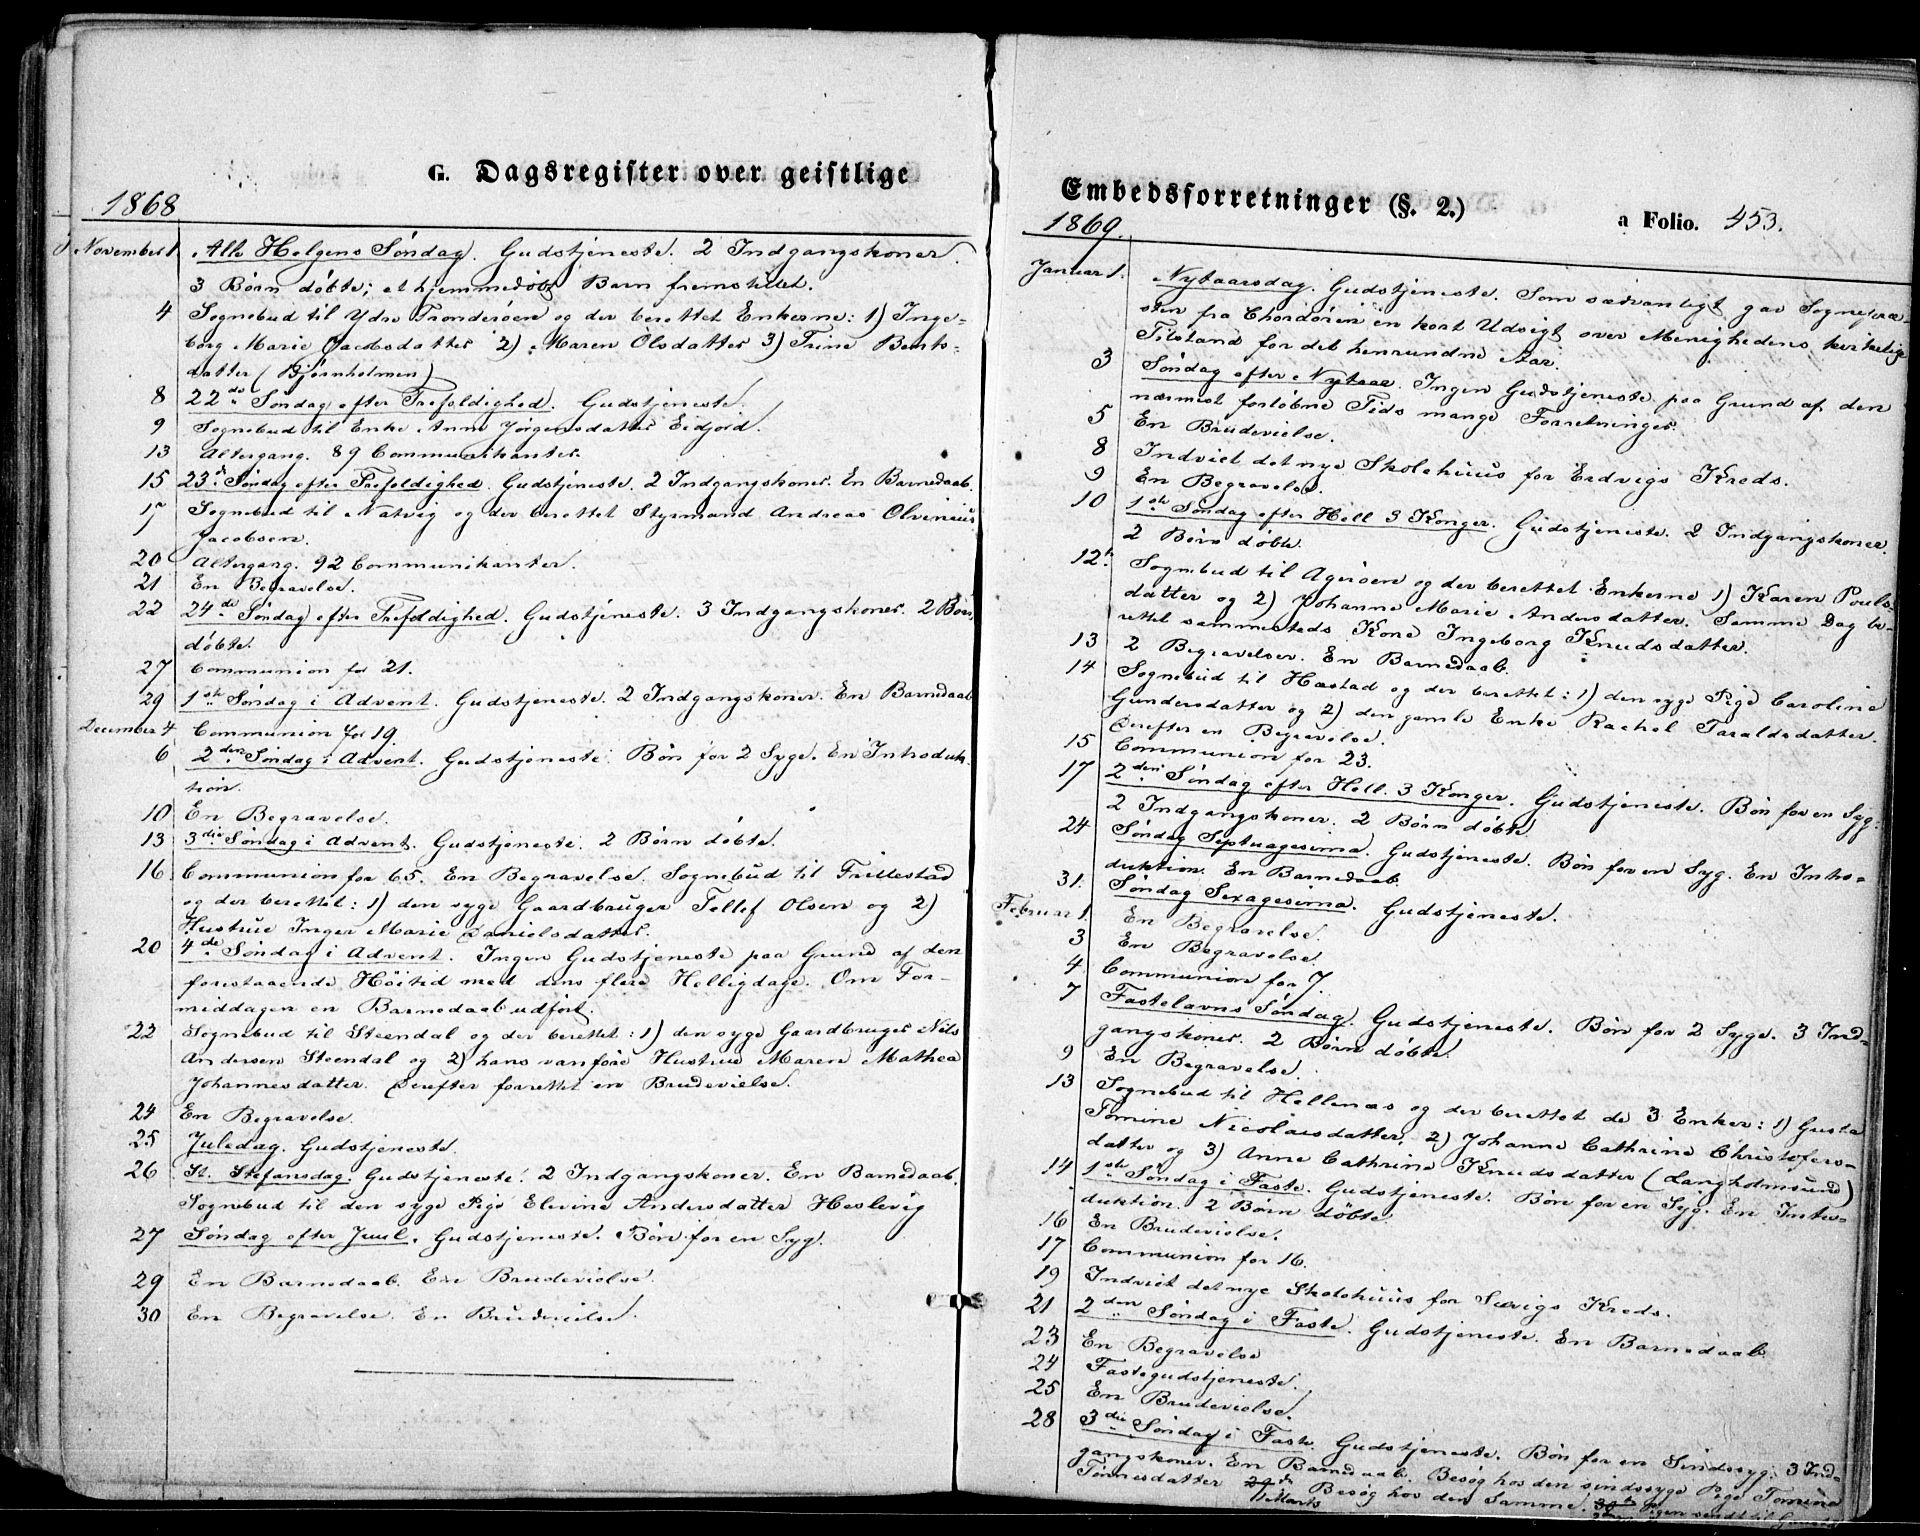 G. Dagsregister over geistlige
1868
November 1. Alle Helgens Søndag. Gudstjeneste. 2 Indgangskoner.
3 Børn døbte; et hjemmedøbt Barn fremstillet.
4 Sognebud til Ydre Tromderöen og der berettet Enkerne: 1) Inge-
borg Marie Jacobsdatter 2) Maren Olsdatter 3) Trine Bents-
datter (Bjørnholmen)
8 22de Søndag efter Trefoldighed. Gudstjeneste.
9 Sognebud til Enke Anne Jørgensdatter Eidjord.
13 Altergang. 89 Communikanter.
15 23d Søndag efter Trefoldighed. Gudstjeneste. 2 Indgangskoner. En Barnedaab.
17 Sognebud til Natvig og der berettet Styrmand Andreas Olvinius
Jacobsen.
20 Altergang. 92 Communikanter.
21 En Begravelse.
22 24de Søndag efter Trefoldighed. Gudstjeneste. 3 Indgangskoner. 2 Børn
døbte.
27 Communion for 21.
29 1ste Søndag i Advent. Gudstjeneste. 2 Indgangskoner. En Barnedaab
December 4 Communion for 19.
6 2den Søndag i Advent. Gudstjeneste. Bøn for 2 Syge. En Introduk-
tion.
10 En Begravelse.
13 3die Søndag i Advent. Gudstjeneste. 2 Børn døbte.
16 Communion for 65. En Begravelse. Sognebud til Frillestad
og der berettet: 1) den syge Gaardbruger Tellef Olsen og 2)
Hustrue Inger Marie Danielsdatter.
20 4de Søndag i Advent. Ingen Gudstjeneste paa Grund af den
forestaaende Høitid med dens flere Helligdage. Om For-
middagen en Barnedaab udført.
22 Sognebud til Steendal og der berettet: 1) den syge Gaardbruger Nils
Andersen Steendal og 2) hans vanføre Hustrue Maren Mathea
Johannesdatter. Derefter forrettet en Brudevielse.
24 En Begravelse.
25 Juledag. Gudstjeneste.
26 St. Stefansdag. Gudstjeneste. 2 Indgangskoner. En Barnedaab.
Sognebud til den syge Pige Elevine Andersdatter Heslevig
27 Søndag efter Juul. Gudstjeneste. Bøn for en Syg.
29 En Barnedaab. En Brudevielse.
30 En Begravelse. En Brudevielse.
Embedsforretninger (§. 2.)
a Folio. 453.
1869.
Januar 1. Nytaarsdag. Gudstjeneste. Som sædvanligt gav Sognepræ-
sten fra Chordøren en kort Udsigt over Menighedens kirkelige
Tilstand for det henrundne Aar.
3 Søndag efter Nytaar. Ingen Gudstjeneste paa Grund af den
nærmest forløbne Tids mange Forretninger.
5 En Brudevielse.
8 Indviet det nye Skolehuus for Erdvigs Kreds.
9 En Begravelse.
10 1ste Søndag efter Hell. 3 Konger. Gudstjeneste. 2 Indgangskoner.
2 Børn døbte.
12. Sognebud til Agerøen og der berettet Enkerne 1) Karen Pouls-
datter og 2) Johanne Marie Andersdatter. Samme Dag be-
rettet sammesteds Kone Ingeborg Knudsdatter.
13 2 Begravelser. En Barnedaab.
14 Sognebud til Hæstad og der berettet: 1) den syge Pige Caroline
Gundersdatter og 2) den gamle Enke Rachel Taraldsdatter.
Derefter en Begravelse.
15 Communion for 23.
17 2den Søndag efter Hell. 3 Konger. Gudstjeneste. Bøn for en Syg.
2 Indgangskoner. 2 Børn døbte.
24 Søndag Septuagesima. Gudstjeneste. Bøn for en Syg. En Intro-
duktion. En Barnedaab.
31. Søndag Sexagesima. Gudstjeneste.
Februar 1. En Begravelse.
3 En Begravelse.
4 Communion for 7.
7 Fastelavns Søndag. Gudstjeneste. Bøn for 2 Syge. 3 Ind-
gangskoner. 2 Børn døbte.
9 En Begravelse.
13 Sognebud til Hellenæs og der berettet de 3 Enker: 1) Gusta
Tomine Nicolaisdatter, 2) Johanne Cathrine Christofers-
datter og 3) Anne Cathrine Knudsdatter (Langholmsund)
14 1ste Søndag i Faste. Gudstjeneste. Bøn for en Syg. En Intro-
duktion. 2 Børn døbte.
16 En Brudevielse.
17 Communion for 16.
19 Indviet det nye Skolehuus for Sævigs Kreds.
21 2den Søndag i Faste. Gudstjeneste. En Barnedaab
23 En Begravelse
24 Fastegudstjeneste.
25 En Brudevielse.
28 3die Søndag i Faste. Gudstjeneste. Bøn for en Sindssyg. 3 Ind-
gangskoner. En Barnedaab. Besøg hos den sindssyge Pige Tomine
Tønnesdatter Marts Besøg hos den Samme.